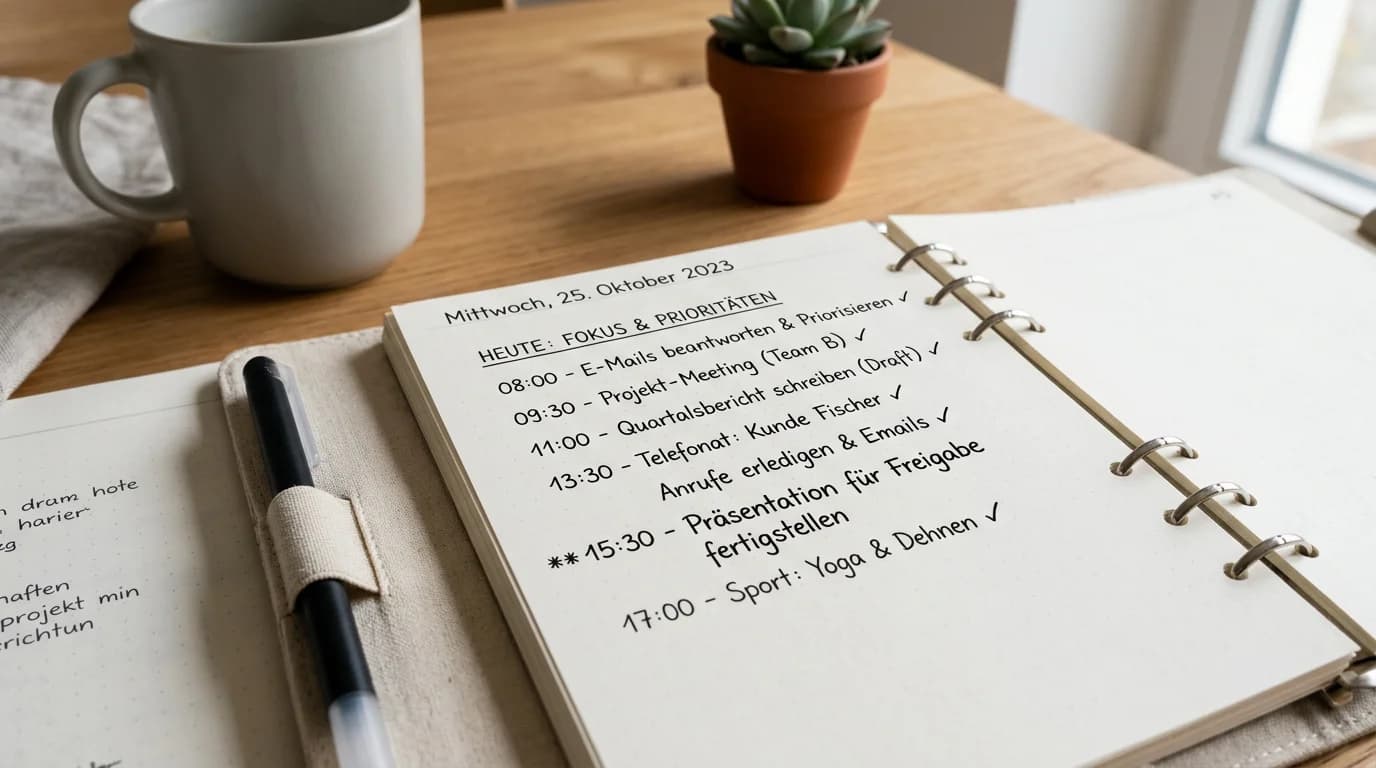 dram hote
harier
haften
projekt min
Mittwoch, 25. Oktober 2023
HEUTE: FOKUS & PRIORITÄTEN
08:00 – E-Mails beantworten & Priorisieren ✓
09:30 – Projekt-Meeting (Team B) ✓
11:00 – Quartalsbericht schreiben (Draft) ✓
13:30 – Telefonat: Kunde Fischer ✓
Anrufe erledigen & Emails ✓
**15:30 – Präsentation für Freigabe
fertigstellen
17:00 – Sport: Yoga & Dehnen ✓